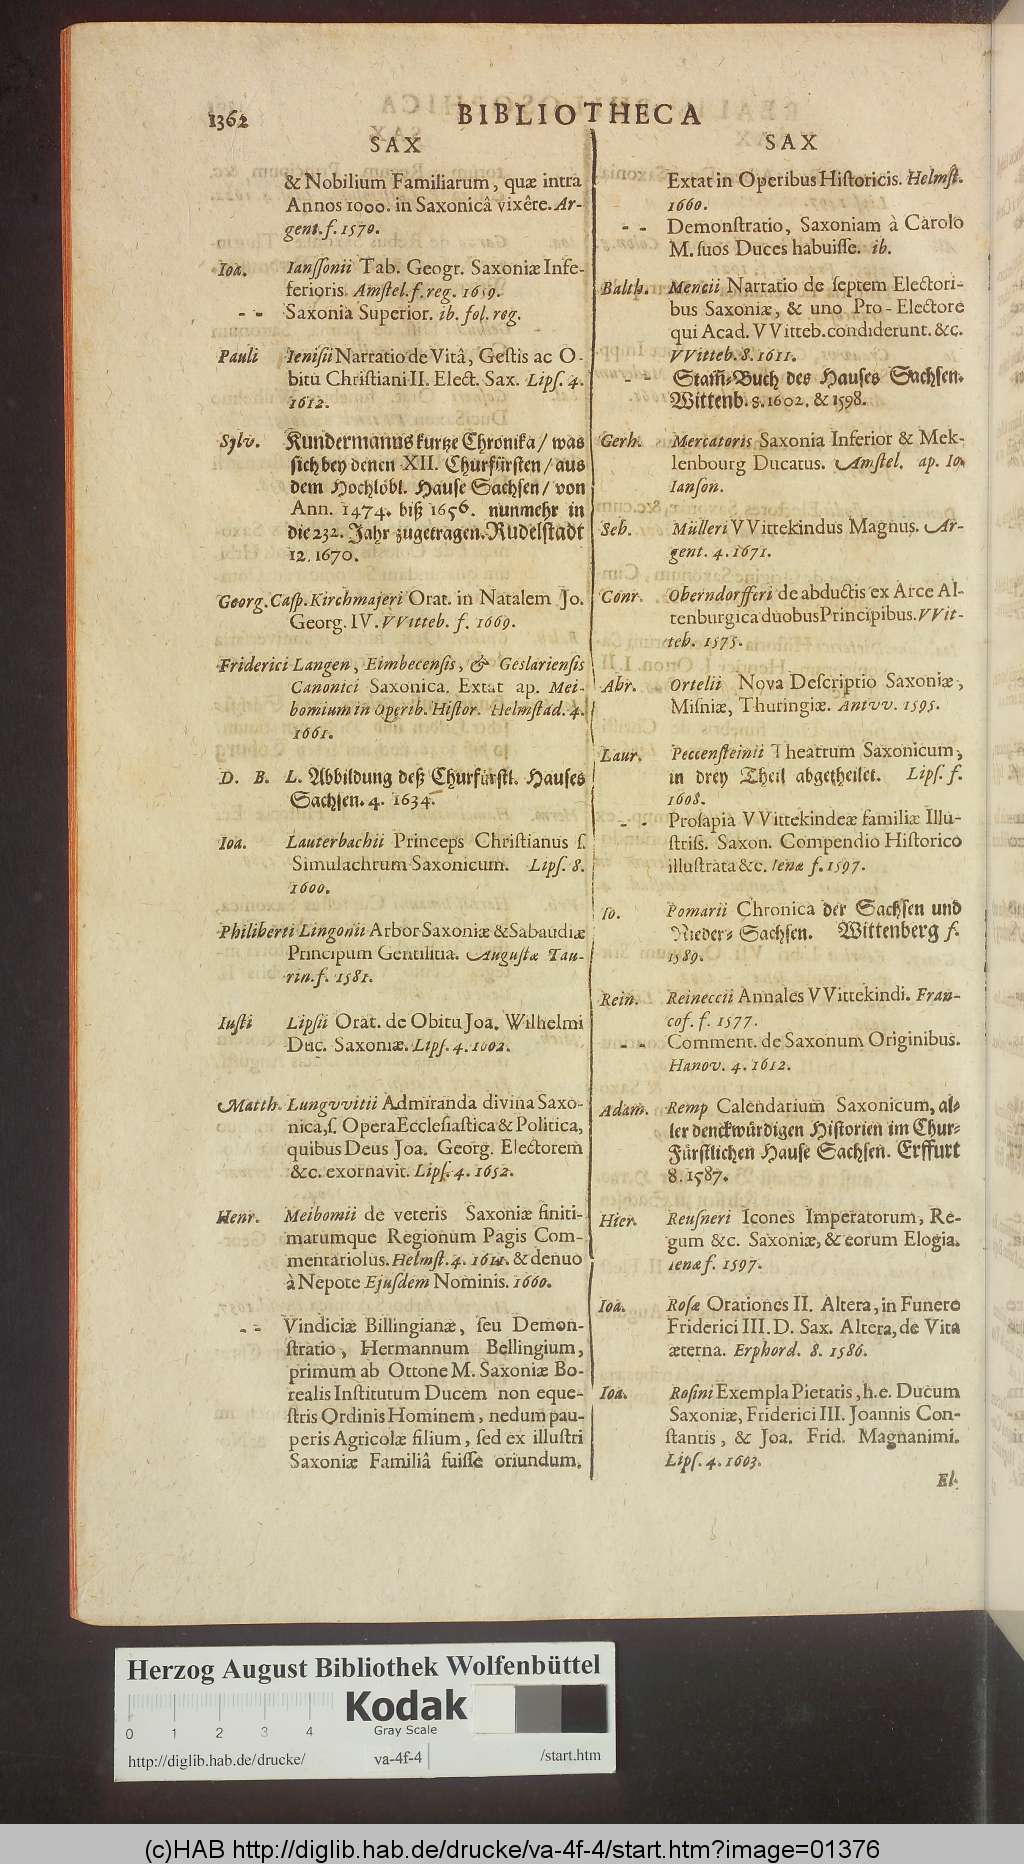 1362
BIBLIOTHECA
SAX
& Nobilium Familiarum, quæ intra
Annos 1000. in Saxonicâ vixêre. Ar-
gent. f. 1570.
Ioa. Ianſſonii Tab. Geogr. Saxoniæ Infe-
ferioris. Amſtel. f. reg. 1659.
- - Saxonia Superior. ib. fol. reg.
Pauli Ieniſii Narratio de Vitâ, Geſtis ac O-
bitu Chriſtiani II. Elect. Sax. Lipſ. 4.
1612.
Sylv. Kundermanns kurtze Chronika / was
ſich bey denen XII. Churfürſten / aus
dem Hochlöbl. Hauſe Sachſen / von
Ann. 1474. biß 1656. nunmehr in
die 232. Jahr zugetragen. Rudelſtadt
12. 1670.
Georg. Caſp. Kirchmajeri Orat. in Natalem Jo.
Georg. IV. VVitteb. f. 1669.
Friderici Langen, Eimbecenſis, & Geslarienſis
Canonici Saxonica. Extat ap. Mei-
bomium in Operib. Hiſtor. Helmſtad. 4.
1661.
D. B. L. Abbildung deß Churfürſtl. Hauſes
Sachſen. 4. 1634.
Ioa. Lauterbachii Princeps Chriſtianus ſ.
Simulachrum Saxonicum. Lipſ. 8.
1600.
Philiberti Lingonii Arbor Saxoniæ & Sabaudiæ
Principum Gentilitia. Auguſtæ Tau-
rin. f. 1581.
Iuſti Lipſii Orat. de Obitu Joa. Wilhelmi
Duc. Saxoniæ. Lipſ. 4. 1602.
Matth. Lungvvitii Admiranda divina Saxo-
nica, ſ. Opera Eccleſiaſtica & Politica,
quibus Deus Joa. Georg. Electorem
&c. exornavit. Lipſ. 4. 1652.
Henr. Meibomii de veteris Saxoniæ finiti-
marumque Regionum Pagis Com-
mentariolus. Helmſt. 4. & denuo
à Nepote Ejuſdem Nominis. 1660.
- - Vindiciæ Billingianæ, ſeu Demon-
ſtratio, Hermannum Bellingium,
primum ab Ottone M. Saxoniæ Bo-
realis Inſtitutum Ducem non eque-
ſtris Ordinis Hominem, nedum pau-
peris Agricolæ filium, ſed ex illuſtri
Saxoniæ Familiâ fuiſſe oriundum.
SAX
Extat in Operibus Hiſtoricis. Helmſt.
1660.
- - Demonſtratio, Saxoniam à Carolo
M. ſuos Duces habuiſſe. ib.
Balth. Mencii Narratio de ſeptem Electori-
bus Saxoniæ, & uno Pro-Electore
qui Acad. VVitteb. condiderunt. &c.
VVitteb. 8. 1611.
- - Stam̄-Buch des Hauſes Sachſen.
Wittenb. 8. 1602. & 1598.
Gerh. Mercatoris Saxonia Inferior & Mek-
lenbourg Ducatus. Amſtel. ap. Io.
Ianſon.
Seb. Mülleri VVittekindus Magnus. Ar-
gent. 4. 1671.
Conr. Oberndorfferi de abductis ex Arce Al-
tenburgica duobus Principibus. VVit-
teb. 1575.
Abr. Ortelii Nova Deſcriptio Saxoniæ,
Miſniæ, Thuringiæ. Antvv. 1595.
Laur. Peccenſteinii Theatrum Saxonicum,
in drey Theil abgetheilet. Lipſ. f.
1608.
- - Proſapia VVittekindeæ familiæ Illu-
ſtriſs. Saxon. Compendio Hiſtorico
illuſtrata &c. Ienæ f. 1597.
Io. Pomarii Chronica der Sachſen und
Nieder- Sachſen. Wittenberg f.
1589.
Rein. Reineccii Annales VVittekindi. Fran-
cof. f. 1577.
- - Comment. de Saxonum Originibus.
Hanov. 4. 1612.
Adam. Remp Calendarium Saxonicum, al-
ler denckwürdigen Hiſtorien im Chur-
Fürſtlichen Hauſe Sachſen. Erffurt
8. 1587.
Hier. Reuſneri Icones Imperatorum, Re-
gum &c. Saxoniæ, & eorum Elogia.
Ienæ f. 1597.
Ioa. Roſæ Orationes II. Altera, in Funere
Friderici III. D. Sax. Altera, de Vita
æterna. Erphord. 8. 1586.
Ioa. Roſini Exempla Pietatis, h.e. Ducum
Saxoniæ, Friderici III. Joannis Con-
ſtantis, & Joa. Frid. Magnanimi.
Lipſ. 4. 1603.
El.
Herzog August Bibliothek Wolfenbüttel
Kodak
Gray Scale
0 1 2 3 4
http://diglib.hab.de/drucke/ va-4f-4 /start.htm
(c)HAB http://diglib.hab.de/drucke/va-4f-4/start.htm?image=01376